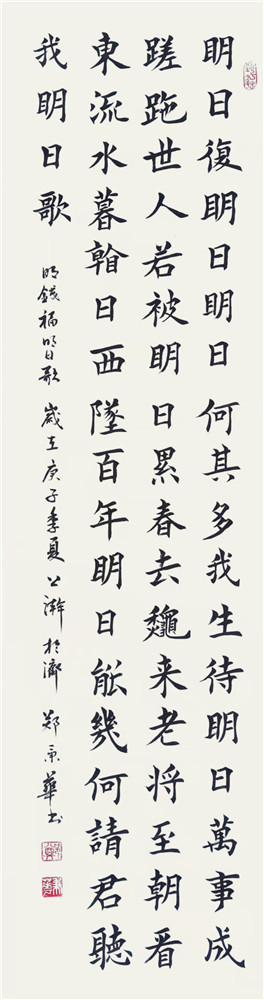 明日復明日明日何其多我生待明日萬事成
蹉跎世人若被明日累春去龝来老将至朝看
東流水暮看日西墜百年明日能幾何請君聽
我明日歌
明錢福明日歌 歲在庚子季夏上澣於濟 鄭景華书